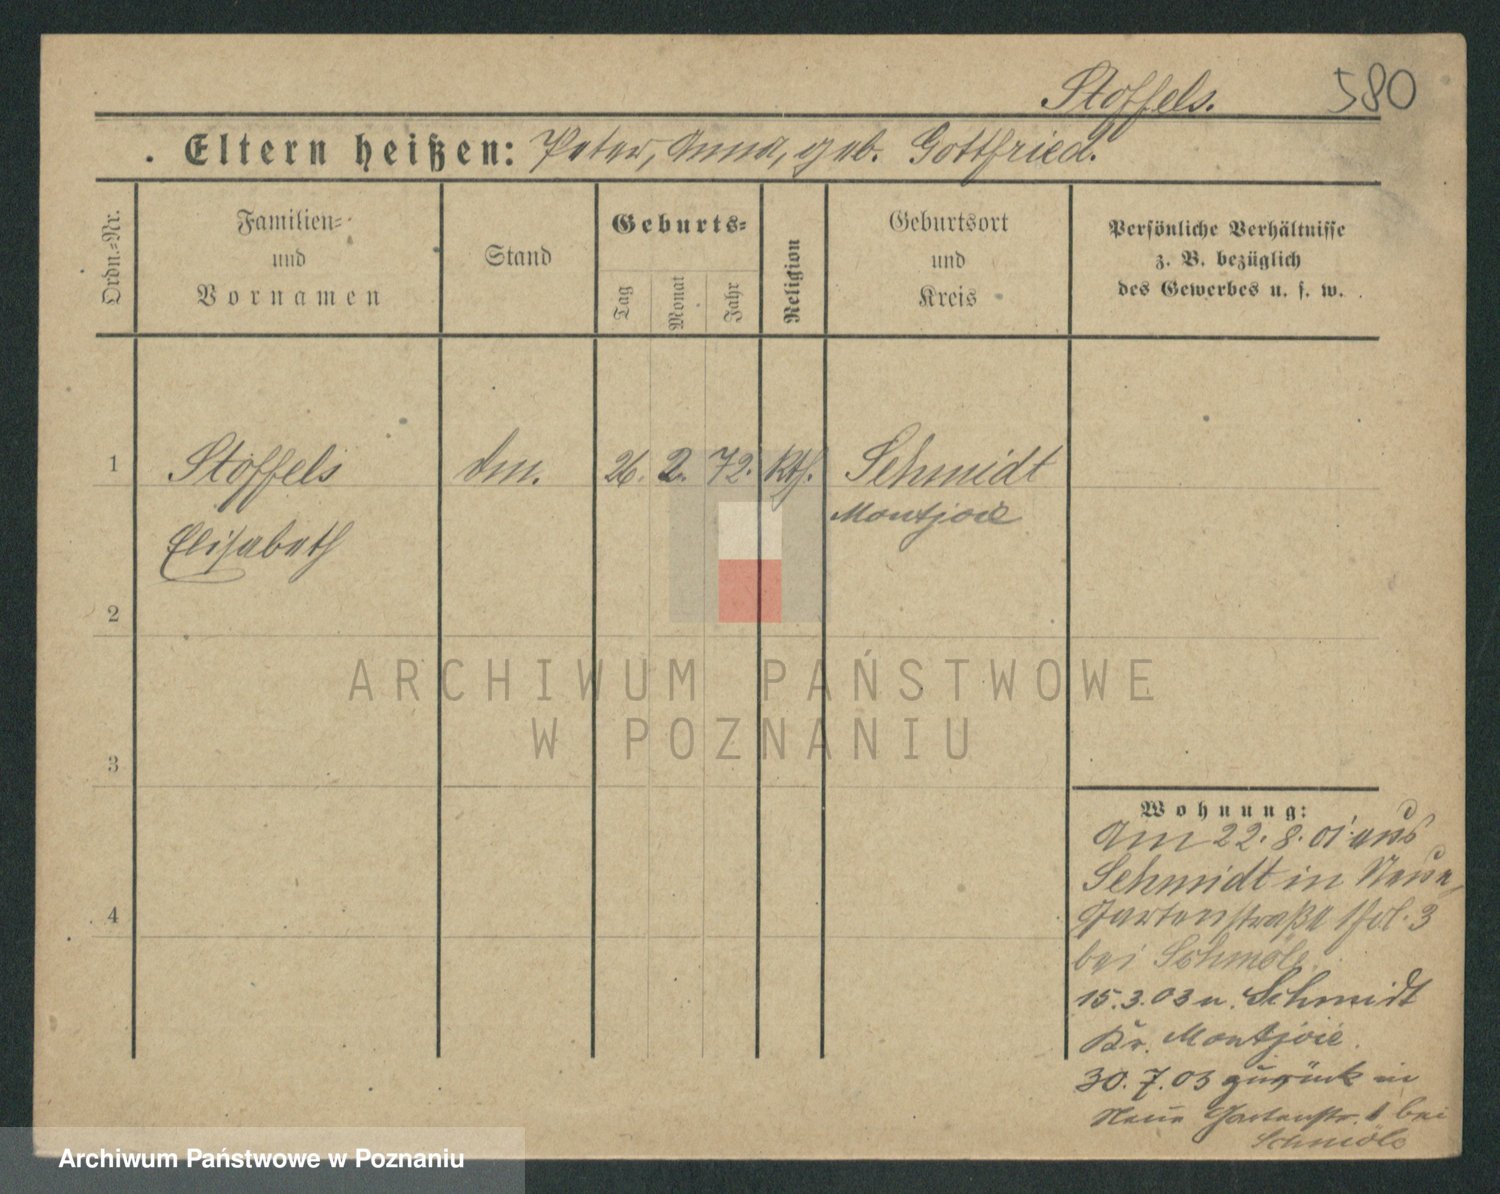 Stoffels. 580
. Eltern heißen: Peter, Anna, geb. Gottfried.
Ordn.-Nr.
Familien-
und
Vornamen
Stand
Geburts-
Tag
Monat
Jahr
Religion
Geburtsort
und
Kreis
Persönliche Verhältnisse
z. B. bezüglich
des Gewerbes u. s. w.
1 Stoffels 26. 2. 72. Kth. Schmidt
Montjoie
Elisabeth
2
ARCHIWUM PAŃSTWOWE
W POZNANIU
3
4
Wohnung:
Am 22. 8. 01 aus
Schmidt in Neue
Gartenstraße 3
bei Schmöle.
15.3.03 n. Schmidt
Kr. Montjoie.
30.7.03 zurück in
Neue Gartenstr. 1 bei
Schmöle
Archiwum Państwowe w Poznaniu